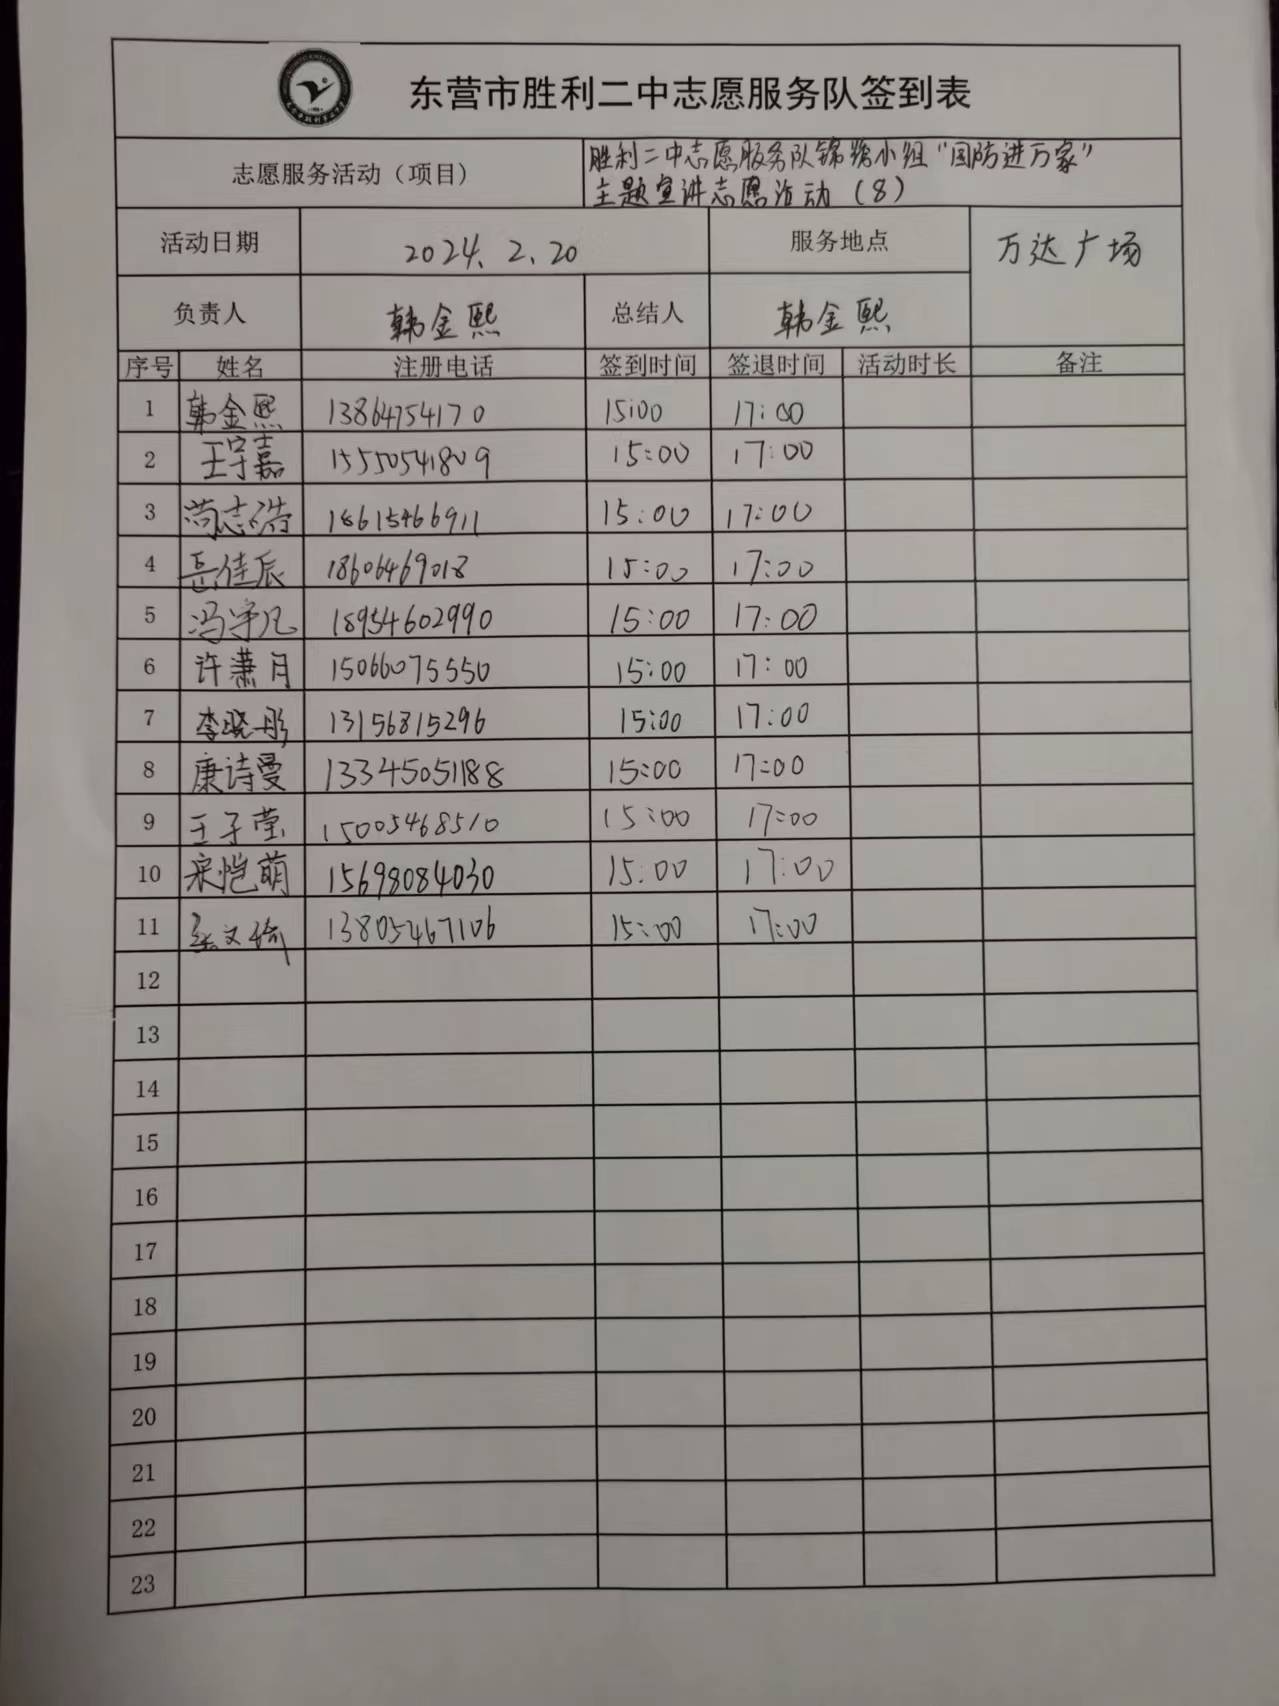 东营市胜利二中志愿服务队签到表
志愿服务活动（项目） 胜利二中志愿服务队锦绣小组“国防进万家”
主题宣讲志愿活动（8）
活动日期 2024.2.20 服务地点 万达广场
负责人 韩金熙 总结人 韩金熙
序号 姓名 注册电话 签到时间 签退时间 活动时长 备注
1 韩金熙 13864754170 15:00 17:00
2 王宇嘉 15550541809 15:00 17:00
3 尚志浩 18615466911 15:00 17:00
4 岳佳辰 18606469018 15:00 17:00
5 冯宇凡 18954602990 15:00 17:00
6 许潇月 15066075550 15:00 17:00
7 李晓彤 13156815296 15:00 17:00
8 康诗曼 13345051188 15:00 17:00
9 王子莹 15005468510 15:00 17:00
10 宋恺萌 15698084030 15:00 17:00
11 文 13805467106 15:00 17:00
12
13
14
15
16
17
18
19
20
21
22
23